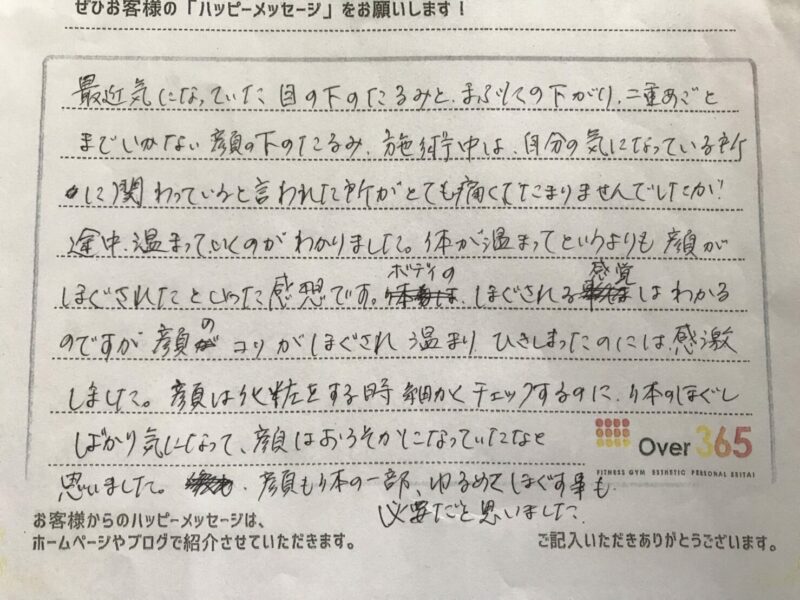 ぜひお客様の「ハッピーメッセージ」をお願いします！
最近気になっていた目の下のたるみと、まぶたの下がり、二重あごと
までいかない顔の下のたるみ、施術中は、自分の気になっている所
に関わっていると言われた所がとても痛くてたまりませんでしたが
途中、温まっていくのがわかりました。体が温まってというよりも顔が
ほぐされたといった感想です。ボディの ほぐされる感覚はわかる
のですが顔のコリがほぐされ温まりひきしまったのには、感激
しました。顔は化粧をする時細かくチェックするのに、体のほぐし
ばかり気になって、顔はおろそかになっていたなと
思いました。顔も体の一部、ゆるめてほぐす事も
必要だと思いました。
Over 365
FITNESS GYM ESTHETIC PERSONAL SEITAI
お客様からのハッピーメッセージは、
ホームページやブログで紹介させていただきます。
ご記入いただきありがとうございます。